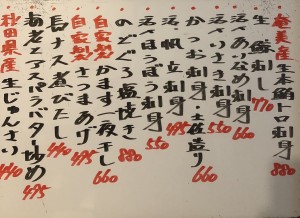 奄美産生本鮪トロ刺身 880
生鯵刺し 770
活〆あいなめ刺身 660
活〆いさき刺身 550
かつお刺身土佐造り 660
活帆立刺身 495
活〆ほうぼう刺身 550
のどぐろ塩焼き 880
自家製さんま一夜干し 660
自家製さつまあげ 495
長ナス煮びたし 440
海老とアスパラバター炒め 495
秋田県産生じゅんさい 440